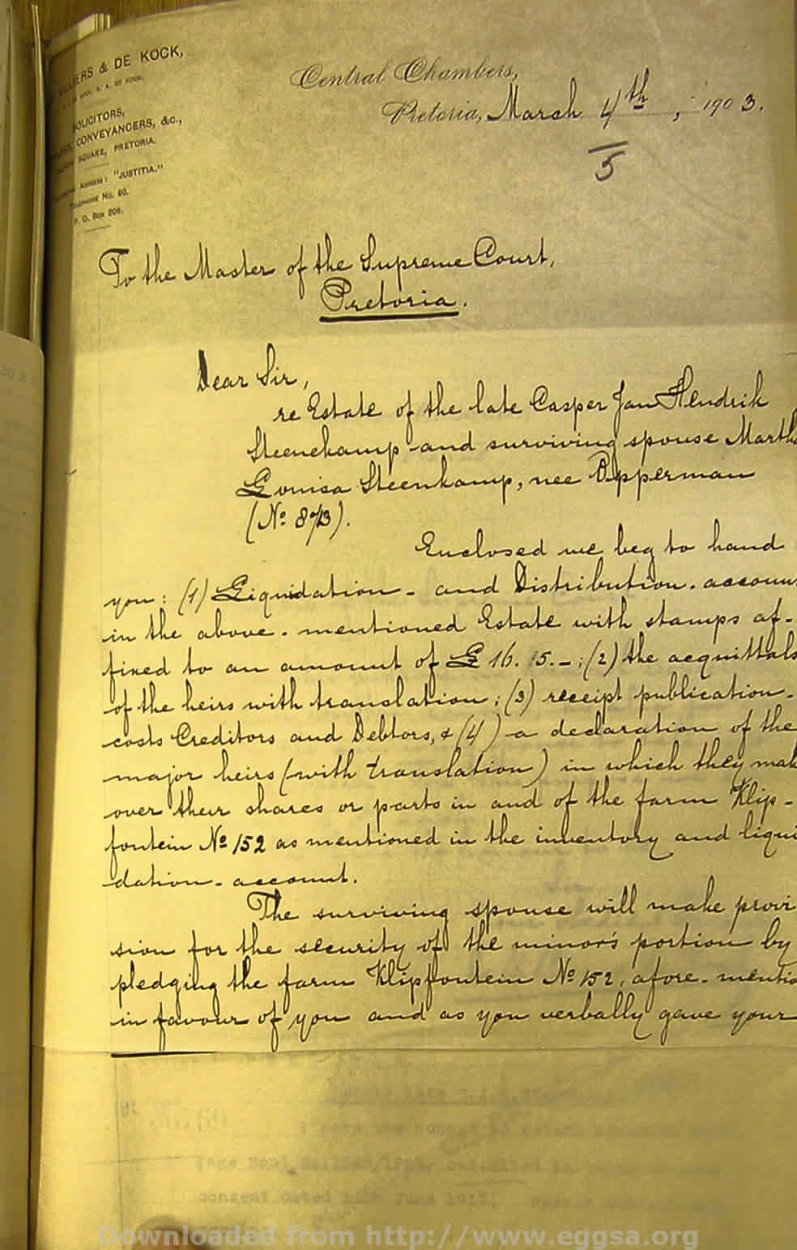 ILLIERS & DE KOCK,
SOLICITORS,
CONVEYANCERS, &c.,
SQUARE, PRETORIA.
ADDRESS: "JUSTITIA."
TELEPHONE No. 60.
P. O. Box 208.
Central Chambers,
Pretoria, March 4th, 1903.
5
To the Master of the Supreme Court,
Pretoria.
Dear Sir,
re Estate of the late Casper Jan Hendrik
Steenekamp and surviving spouse Marth
Louisa Steenkamp, nee Opperman
(No: 873).
Enclosed we beg to hand
you: (1) Liquidation- and Distribution-accoun
in the above-mentioned Estate with stamps af-
fixed to an amount of £ 16.15.-; (2) the acquittals
of the heirs with translation; (3) receipt publication-
costs Creditors and Debtors, & (4) a declaration of the
major heirs (with translation) in which they mak
over their shares or parts in and of the farm Klip-
fontein No 152 as mentioned in the inventory and liqui
dation-account.
The surviving spouse will make provi
sion for the security of the minor's portion by
pledging the farm Klipfontein No 152, afore-mentio
in favour of you and as you verbally gave your
consent dated June 1917.
Downloaded from http://www.eggsa.org